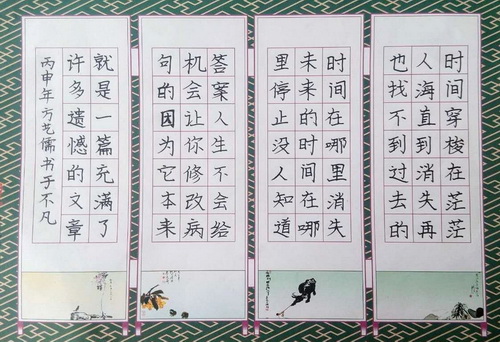 时间穿梭在茫茫
人海直到消失再
也找不到过去的
时间在哪里消失
未来的时间在哪
里停止没人知道
答案人生不会给
机会让你修改病
句的因为它本来
就是一篇充满了
许多遗憾的文章
丙申年方艺儒书于不凡